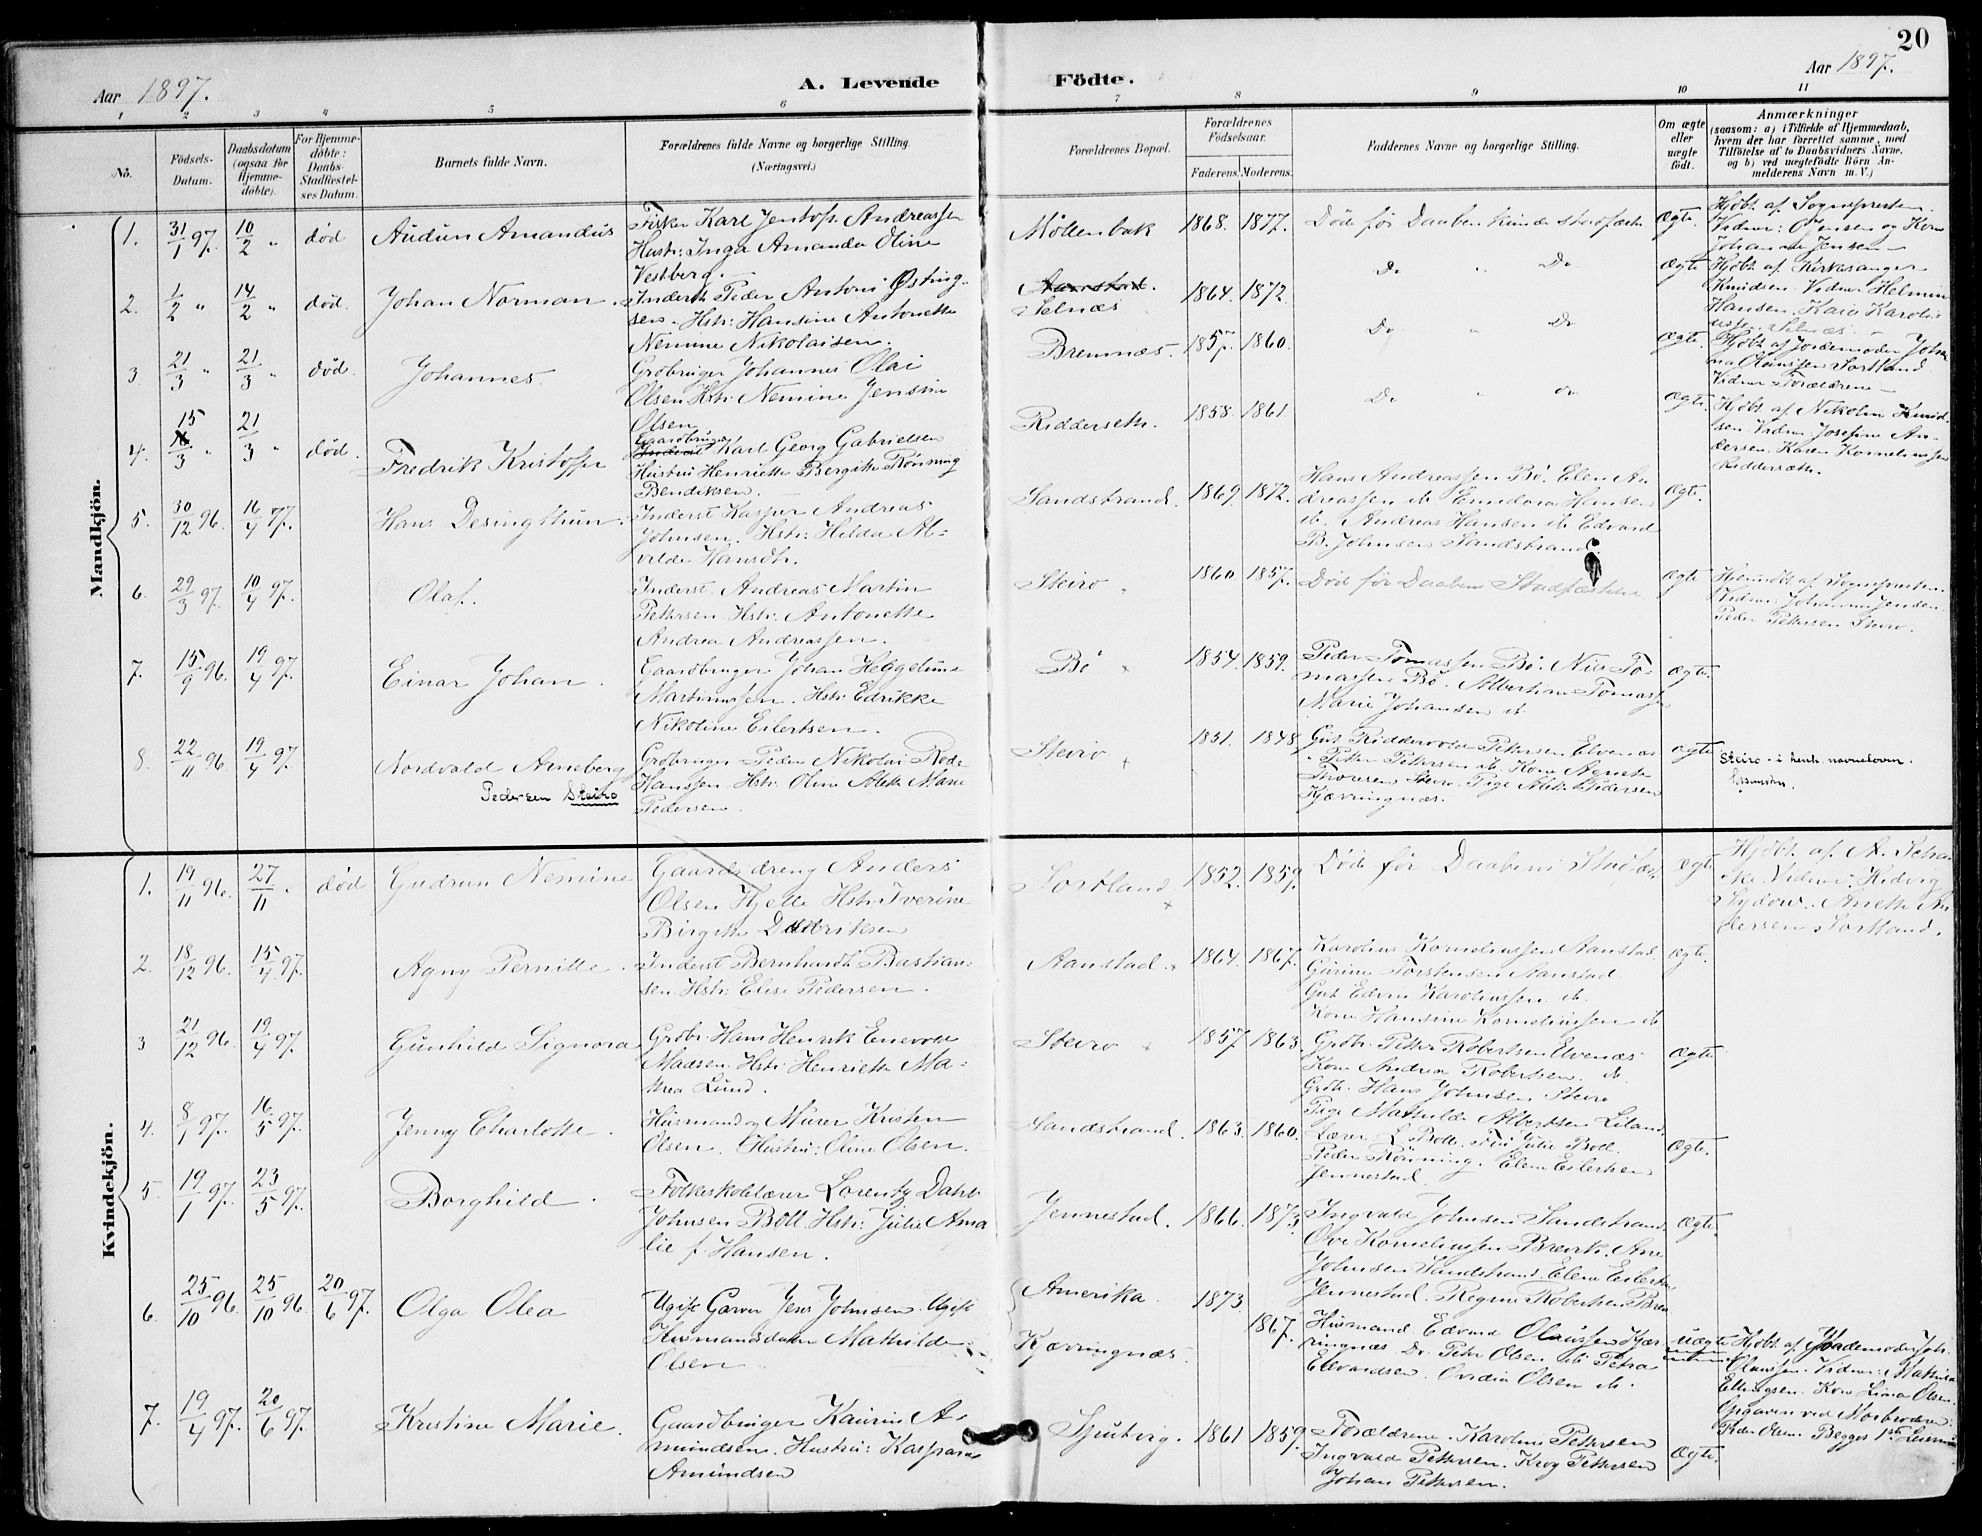 20
Aar 1897.
A. Levende Födte.
Aar 1897.
1 2 3 4 5 6 7 8 9 10 11
No.
Födsels-
Datum.
Daabsdatum
(ogsaa for
Hjemme-
döbte).
For Hjemme-
döbte:
Daabs-
Stadfæstel-
ses Datum.
Barnets fulde Navn.
Forældrenes fulde Navne og borgerlige Stilling.
(Næringsvei.)
Forældrenes Bopæl.
Forældrenes
Födselsaar.
Faderens. Moderens.
Faddernes Navne og borgerlige Stilling.
Om ægte
eller
uægte
födt.
Anmærkninger
(saasom: a) i Tilfælde af Hjemmedaab,
hvem der har forrettet samme, med
Tilföielse af to Daabsvidners Navne.
og b) ved uægtefödte Börn An-
melderens Navn m. V.)
Mandkjön.
1. 31/1 97. 10/2 " död Audun Amandus
Fisker Karl Jentof. Andreassen
Hustr: Inga Amanda Oline
Vestberg.
Möllenbak 1868. 1877. Döde før Daaben kunde stadfæste Ægte.
Hjöbt af Sognepresten.
Vidner: O Jensen og Kone
Johanna Jensen
2. 1/2 " 14/2 " död. Johan Norman.
Inderst Peder Antoni Østing-
sen. Hstr: Hansine Antonette
Nemine Nikolaisen.
Selnæs 1864. 1872. Do " Do Ægte
Hjöbt af Kirkesanger
Knudsen. Vidner Helmin
Hansen. Kaia Karoli
Selnæs.
3. 21/3 " 21/3 " död. Johannes.
Gröbruger Johannes Olai
Olsen Hstr: Nemine Jensine
Olsen
Bremnæs. 1857. 1860. Do " Do Ægte.
Hjöbt af Jordemoder Joha
na Olaussen Sortland
Vidner Forældrene
4. 15/3 " 21/3 " död. Fredrik Kristoffer
Gaardbruger Karl Georg Gabrielsen
Hustru Henriette Bergitte Rönning
Bendiksen.
Ridderseth. 1858. 1861. Do " Do Ægte.
Hjöbt af Nikolai Knud
sen Vidner Josefine An-
dersen. Karen Kornelinssen
Riddersæth.
5. 30/12 96. 16/4 97. Hans Desingthun.
Inderst Kasper Andreas
Johnsen. Hstr: Hilda Al-
vilde Hansdtr.
Sandstrand. 1869. 1872.
Hans Andreassen Bö. Elen An
dreassen ib Hansen
ib. Andreas Hansen ib Edvard
B. Johnsen Sandstrand.
Ægte.
6. 29/3 97. 10/4 97. Olaf.
Inderst. Andreas Martin
Pettersen. Hstr: Antonette
Andrea Andreassen.
Steiro 1860. 1857. Död før Daabens Stadfæstelse. Ægte
Hjemmdöbt af Sognepresten
Vidner: Johanna Jensen
Peder Pettersen Steiro.
7. 15/9 96. 19/4 97. Einar Johan.
Gaardbruger Johan Heggelun
Martinussen. Hstr: Edrikke
Nikoline Eilertsen.
Bö 1854. 1859.
Peder Tomassen Bö. Nils To-
massen Bö. Albertine Tomassen
Marie Johansen ib
Ægte.
8. 22/11 96. 19/4 97. Nordvald Arneberg
Pedersen Steiro
Gröbruger Peder Nikolai Rode
Hanssen. Hstr: Oline Aleth Marie
Pedersen.
Steiro 1851. 1848.
Gut Riddervold Pettersen Elvenæs
Petter Pettersen ib. Kone Agnete
Thoresen Steiro. Pige Pedersen
Kjærringnæs.
Ægte
Steiro - i henh. navneloven.
Kvindekjön.
1. 19/11 96. 27/11 " död Gudrun Nemine
Gaardsdreng Anders
Olsen Hjelle Hstr: Iverine
Birgitte Didriksen
Sortland 1852. 1859. Döde før Daabens Stadfæst. Ægte
Hjöbt. af A. Schan
ke Vidner: Hedvig
Sydow. Anette An
dersen Sortland.
2. 18/12 96. 15/4 97. Agny Pernille.
Inderst Bernhardt Bastian-
sen. Hstr: Elise Pedersen.
Aanstad. 1864. 1867.
Karolius Korneliussen Aanstad
Gurine Torstensen Aanstad
Gut Edvin Karolinssen ib.
Kone Hansine Korneliussen ib
Ægte.
3 21/12 96. 19/4 97. Gunhild Signora
Gröbr. Hans Henrik Enevold
Madsen. Hstr: Henriette Ma-
thea Lund.
Steiro 1857 1863
Gröbr. Petter Robertsen Elvenæs
Kone Andrea Robertsen. ib.
Gröbr. Hans Johnsen Steiro
Pige Mathilde Albertsen Liland.
Ægte.
4. 8/1 97. 16/5 97. Jenny Charlotte.
Husmand og Murer Kristen
Olsen. Hustru: Oline Olsen.
Sandstrand. 1863. 1860.
Lærer L Boll. Fru Julie Boll.
Peder Rönning. Elene Eilertsen
Jennestad.
Ægte.
5. 19/1 97. 23/5 97. Borghild.
Folkeskolelærer Lorentz Dahl
Johnsen Boll. Hstr: Julie Ama
lie f. Hansen.
Jennestad. 1866. 1873.
Ingvald Johnsen Sandstrand.
Ove Korneliussen Brevik. Ane
Johnsen Sandstrand. Elene Eilertsen
Jennestad. Regine Robertsen Brev
Ægte.
6. 25/10 96. 25/10 96. 20/6 97. Olga Olea
Ugift Garver Jens Johnsen. Ugift
Husmandsdatter Mathilde
Olsen.
Amerika. 1873.
Kjærringnæs. 1867.
Husmand Edvard Olaussen Kjær
ringnæs Do Peter Olsen ib. Petra
Edvardsen. Ovidia Olsen ib.
uægte
Hjöbt. af Jordemoder Joh.
Olaussen. Vidner: Mathis
Ellingsen. Kone Lina Olsen.
Opgaven ved Morbroderen:
Peder Olsen. Begges 1ste Leiermaal
7. 19/4 97. 20/6 97. Kristine Marie.
Gaardbruger Kaurin A-
mundsen. Hustru: Kaspara
Amundsen
Spuberg. 1861 1859.
Forældrene. Karolius Pettersen
Ingvald Pettersen. Krog Pettersen
Johan Pettersen.
Ægte.